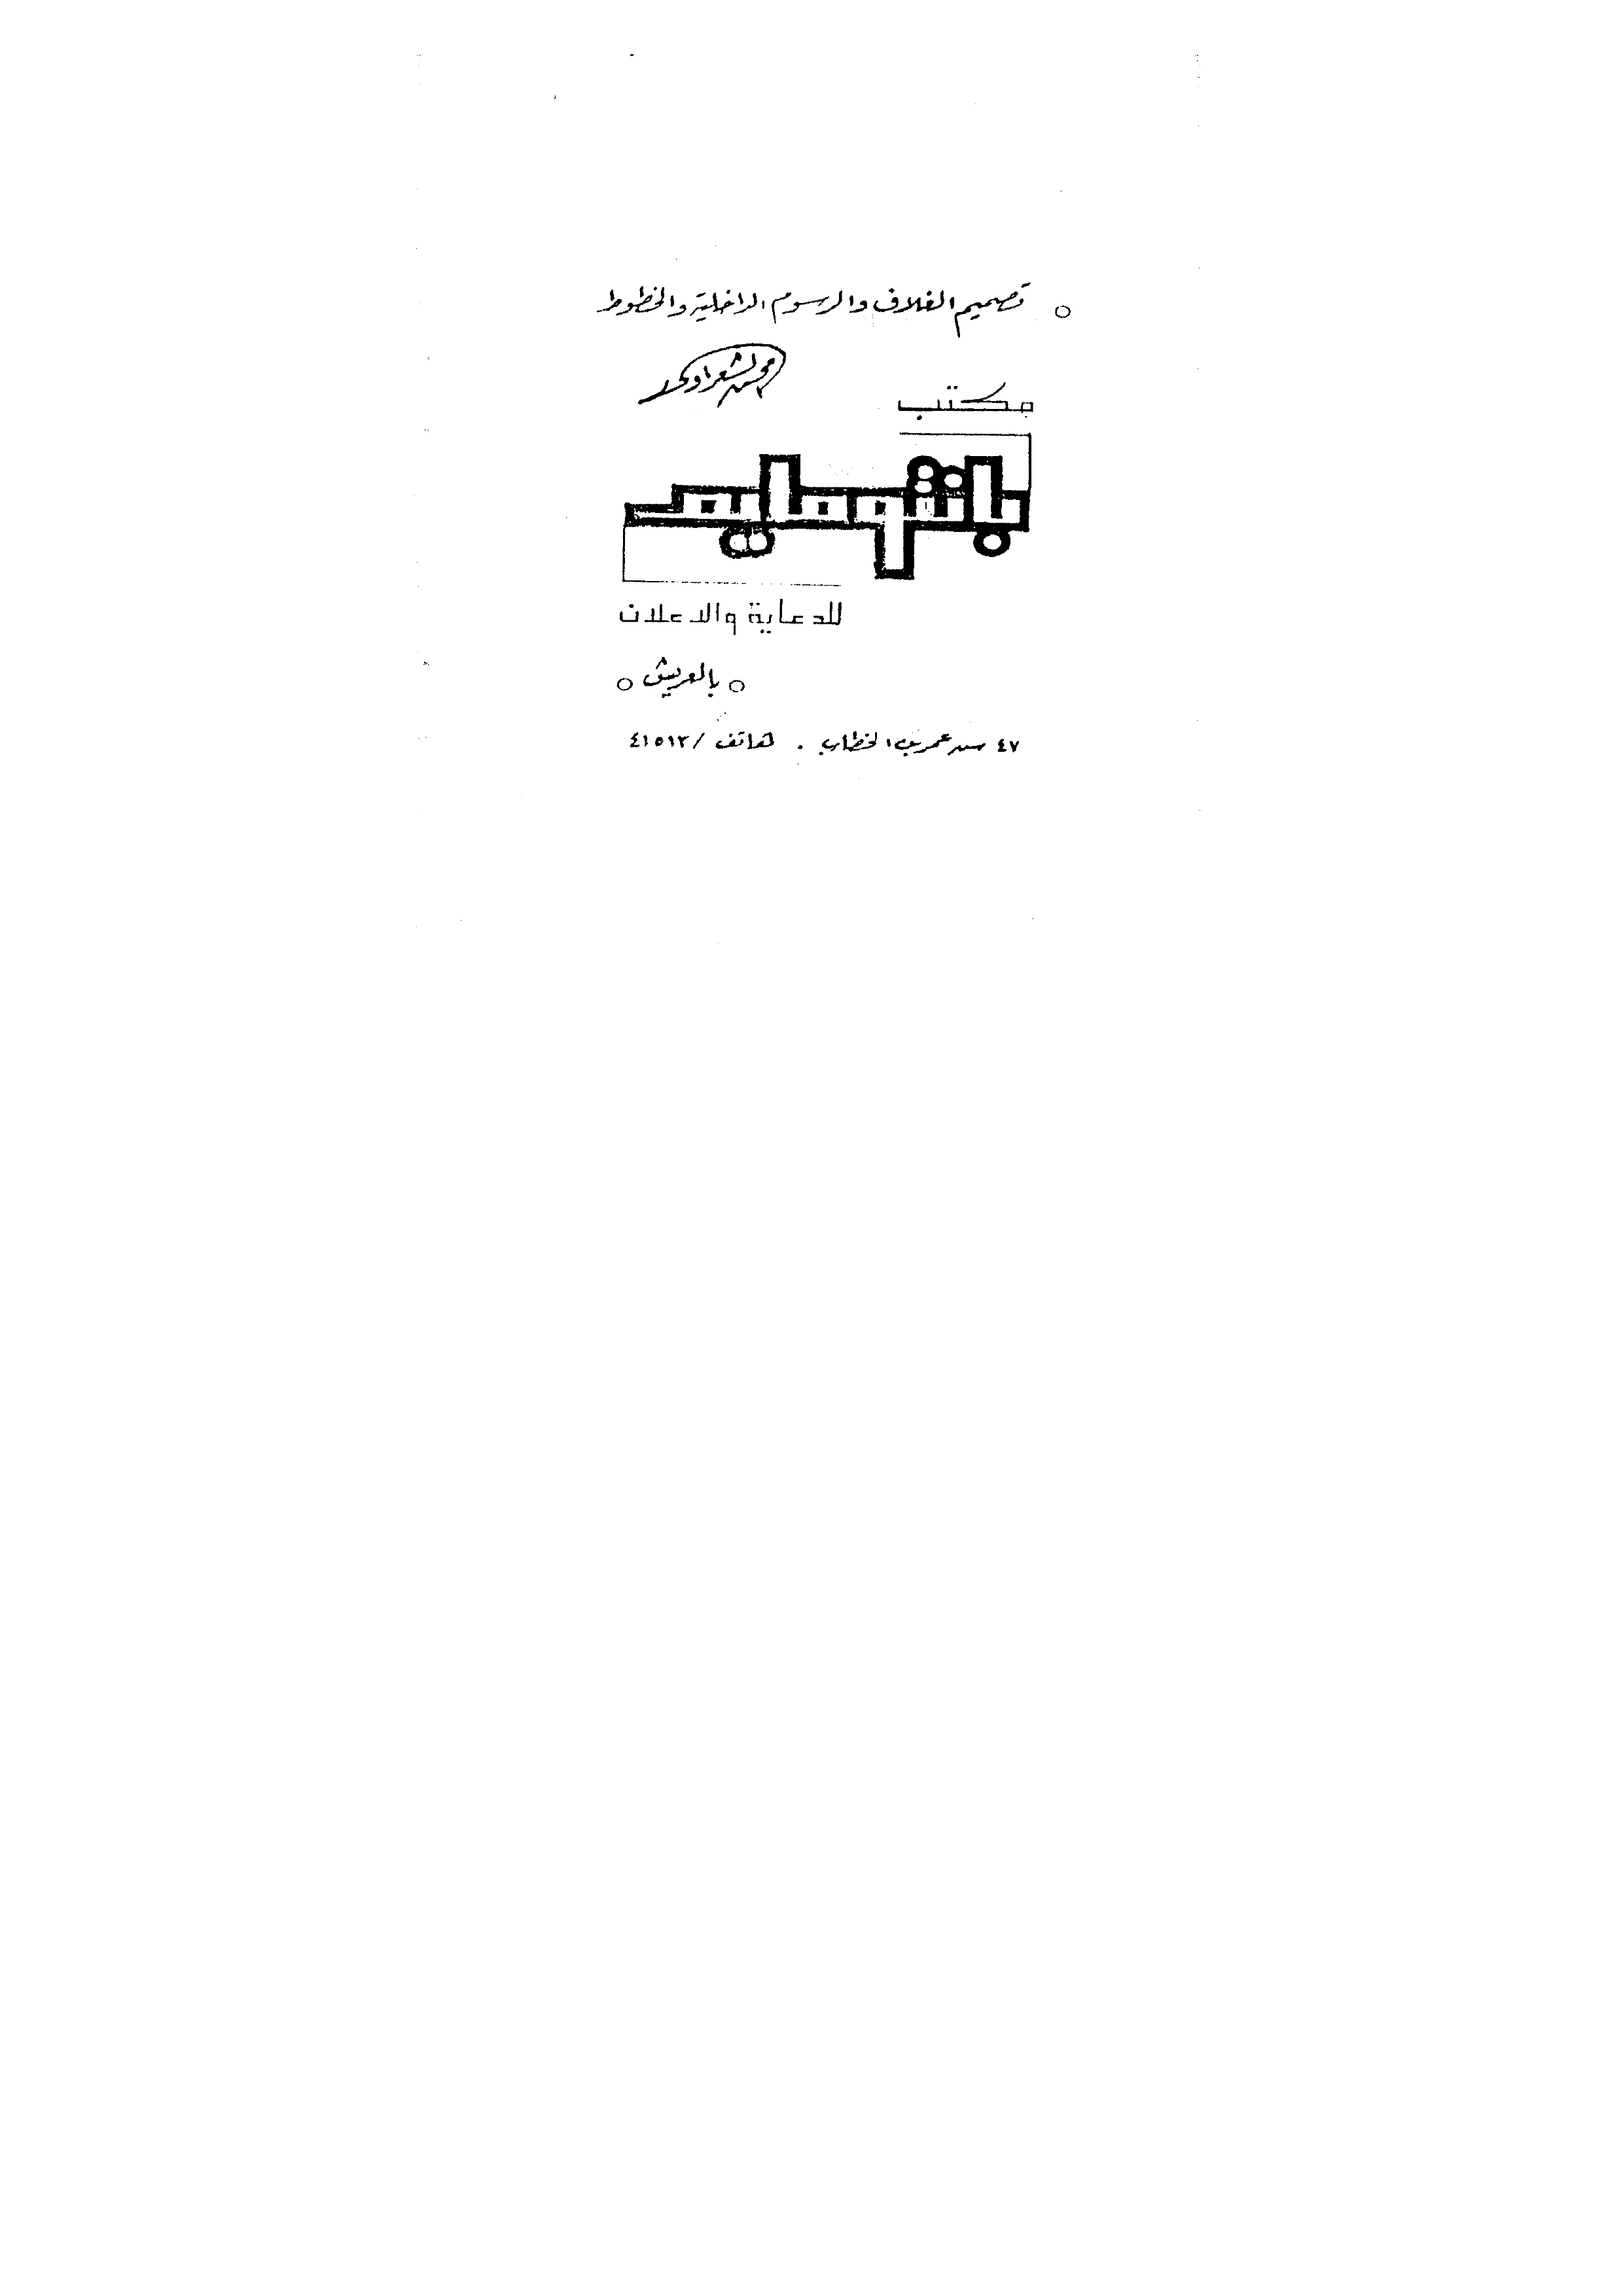 ○ تصميم الغلاف والرسوم الداخلية والخطوط
محسن الشعراوي
مكتب
للدعاية والاعلان
○ بالعريش ○
٤٧ ش عمر بن الخطاب . هاتف / ٤١٥١٣